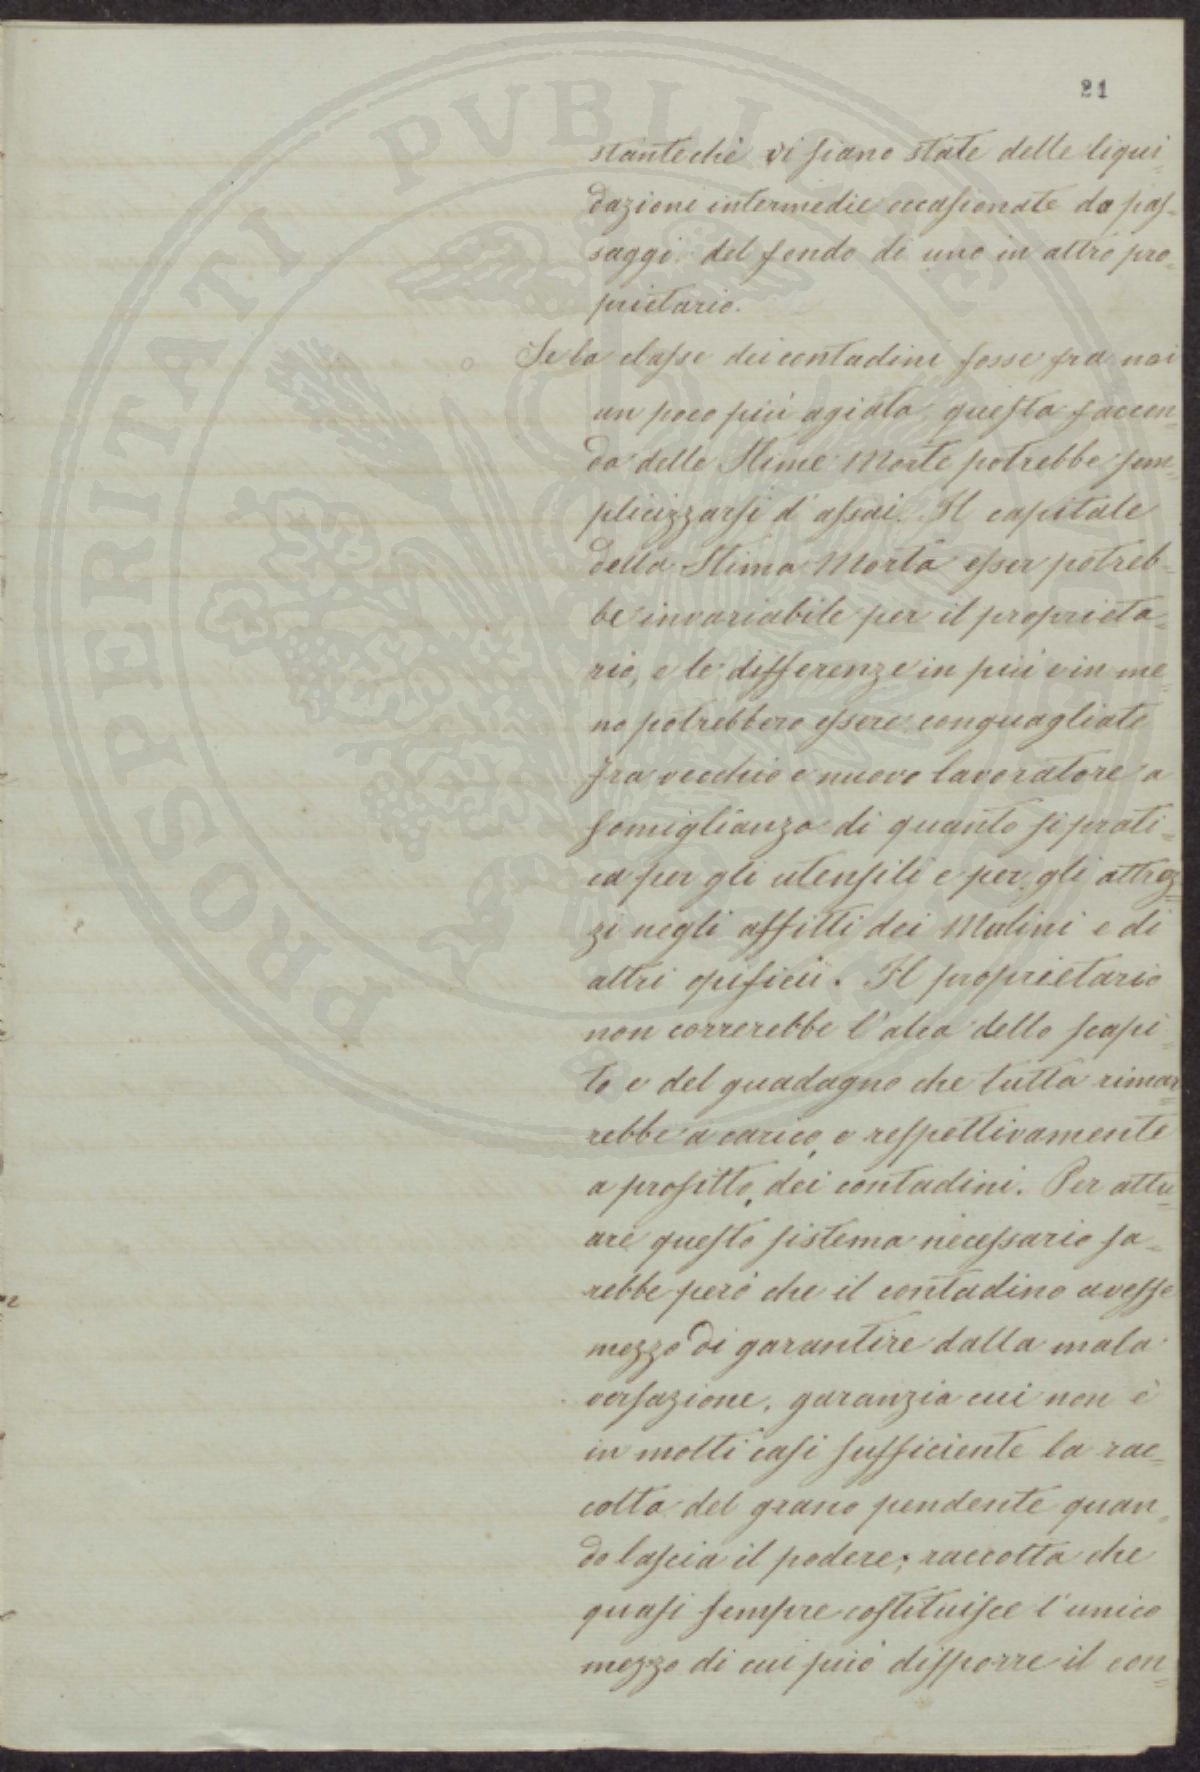 21
stantechè vi siano state delle liqui=
dazioni intermedie occasionate da pas=
saggi del fondo di uno in altro pro=
prietario.
Se la classe dei contadini fosse fra noi
un poco più agiata, questa faccen=
da delle Stime Morte potrebbe sem=
plicizzarsi d'assai. Il capitale
della Stima Morta esser potreb=
be invariabile per il proprieta=
rio, e le differenze in più e in me=
no potrebbero essere conguagliate
fra vecchio e nuovo lavoratore a
somiglianza di quanto si prati=
ca per gli utensili e per gli attrez=
zi negli affitti dei Mulini e di
altri opificii. Il proprietario
non correrebbe l'alea dello scapi=
to e del guadagno che tutta rimar=
rebbe a carico, e respettivamente
a profitto, dei contadini. Per attu=
are questo sistema necessario sa=
rebbe però che il contadino avesse
mezzo di garantire dalla mala
versazione, garanzia cui non è
in molti casi sufficiente la rac=
colta del grano pendente quan=
do lascia il podere; raccolta che
quasi sempre costituisce l'unico
mezzo di cui può disporre il con=
PROSPERITATI PVBLICAE